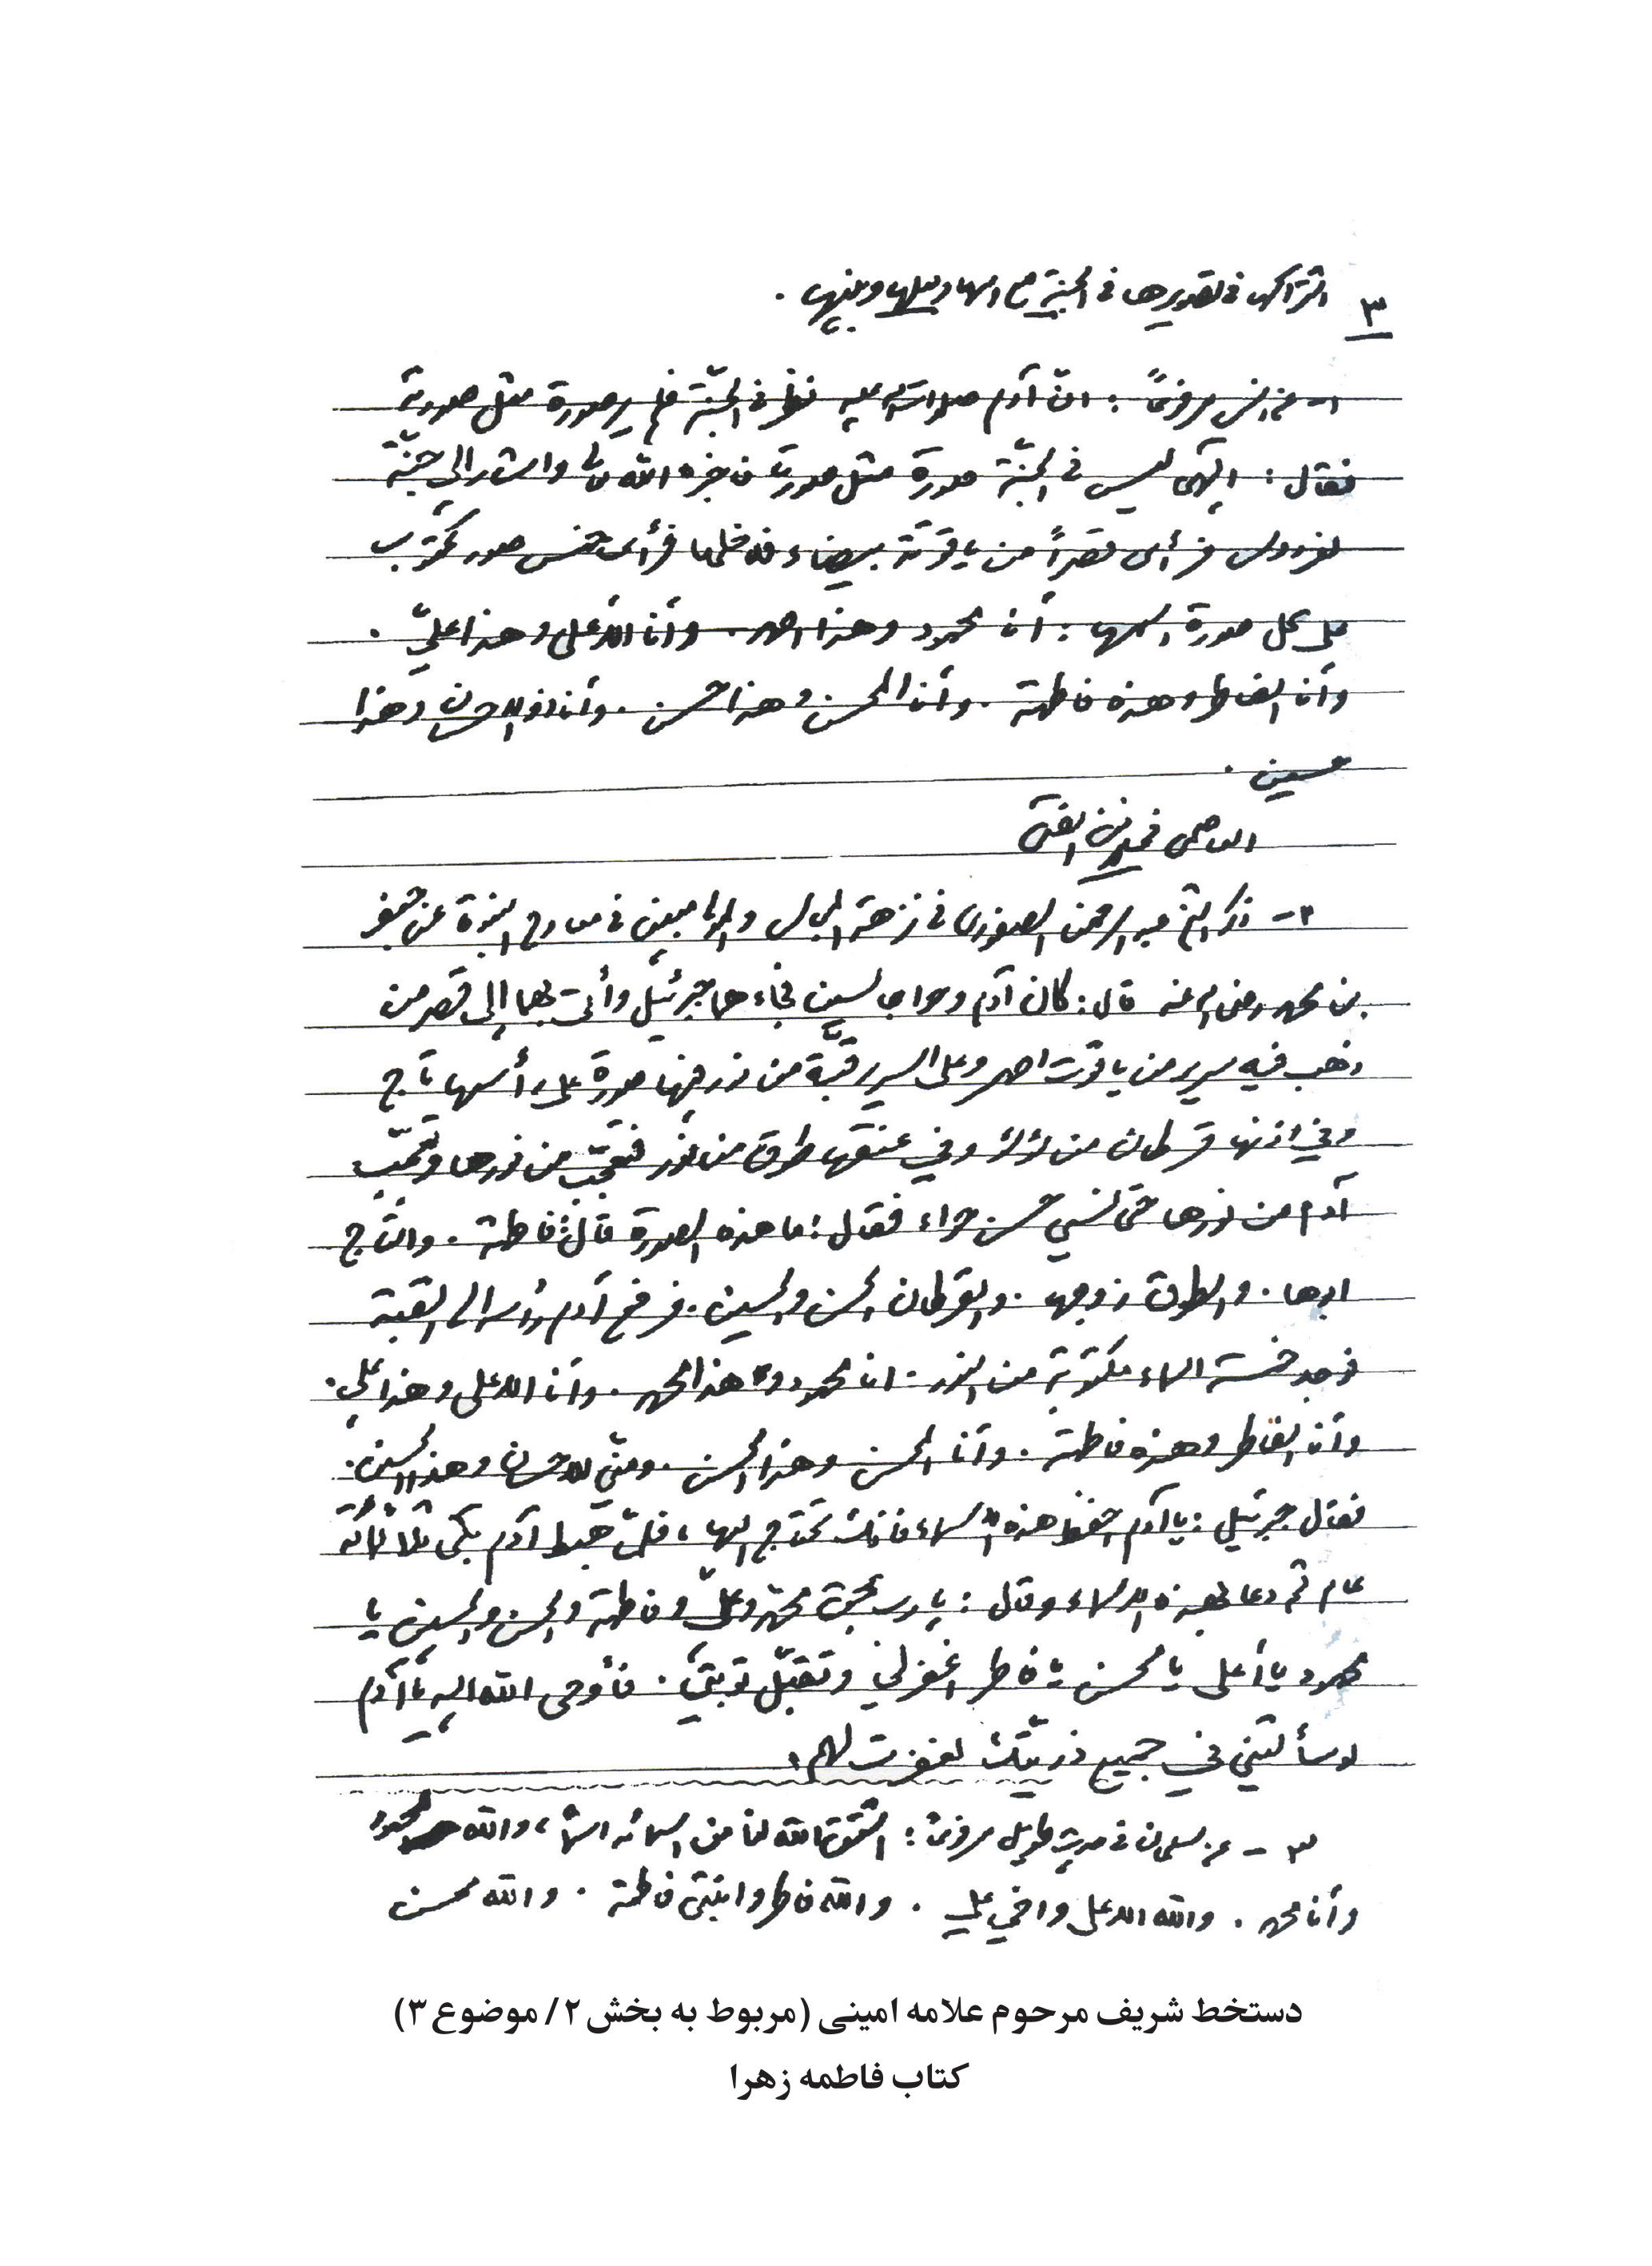 ٣ اشتراكها في تصويرها في الجنة مع ابيها وبعلها وبنيها .
١ـ عن انس مرفوعاً : انّ آدم صلوات الله عليه نظر في الجنّة فلم ير صورة مثل صورته
فقال : الٰهي ليس في الجنّة صورة مثل صورتي فاخبره الله تعالى واشار الى جنّة
الفردوس فرأى قصراً من ياقوتة بيضاء فدخلها فرأى خمس صور مكتوب
على كل صورة اسمها : أنا محمود وهذا احمد . وأنا الأعلى وهذا عليّ .
وأنا الفاطر وهذه فاطمة . وأنا المحسن وهذا حسن . وأنا ذو الاحسان وهذا
حسين .
العاصمي في زين الفتى
٢ـ ذكر الشيخ عبد الرحمن الصفوري في نزهة المجالس والملا معين في معارج النبوة عن جعفر
بن محمد رضي الله عنه قال : كان آدم وحوا جالسين فجاءهما جبرئيل وأتى بهما إلى قصر من
ذهب فيه سرير من ياقوت احمر وعلى السرير قبّة من نور فيها صورة على رأسها تاج
وفي اذنها قرطان من لؤلؤ وفي عنقها طوق من نور فتعجّب من نورها وتعجّب
آدم من نورها حتى نسي حسن حواء فقال : ما هذه الصورة قال : فاطمة . والتاج
ابوها . والطوق زوجها . والقرطان الحسن والحسين . فرفع آدم رأسه الى القبة
فوجد خمسة اسماء مكتوبة من النور . انا محمود وهذا محمد . وأنا الاعلى وهذا علي .
وأنا الفاطر وهذه فاطمة . وأنا المحسن وهذا الحسن . ومنّي الاحسان وهذا الحسين .
فقال جبرئيل : يا آدم احفظ هذه الاسماء فانك تحتاج اليها ، فلمّا هبط آدم بكى ثلاثمائة
عام ثم دعا بهذه الاسماء وقال : يا رب بحق محمد وعليّ وفاطمة والحسن والحسين يا
محمود يا أعلى يا محسن يا فاطر اغفر لي وتقبّل توبتي . فأوحى الله اليه يا آدم
لو سألتني في جميع ذريتك لغفرت لهم .
٣ ـ عن سلمان في حديث طويل مرفوعاً : اشتق الله لنا من اسمائه اسماً ، والله محمود
وأنا محمد . والله الاعلى واخي علي . والله فاطر وابنتي فاطمة . والله محسن
دستخط شریف مرحوم علامه امینی (مربوط به بخش ۲/ موضوع ۳)
کتاب فاطمه زهرا